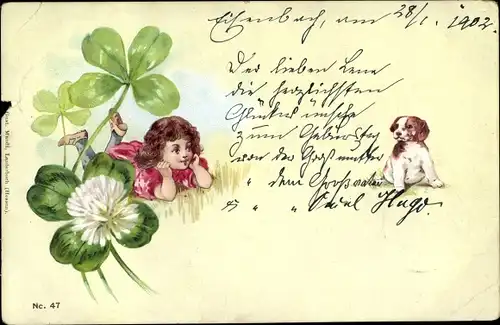 Eisenbach, am 28/1. 1902.
Der lieben Lene
die herzlichsten
Glückwünsche
zum Geburtstag
von der Großmutter
" dem Großvater
" " Hugo.
No. 47